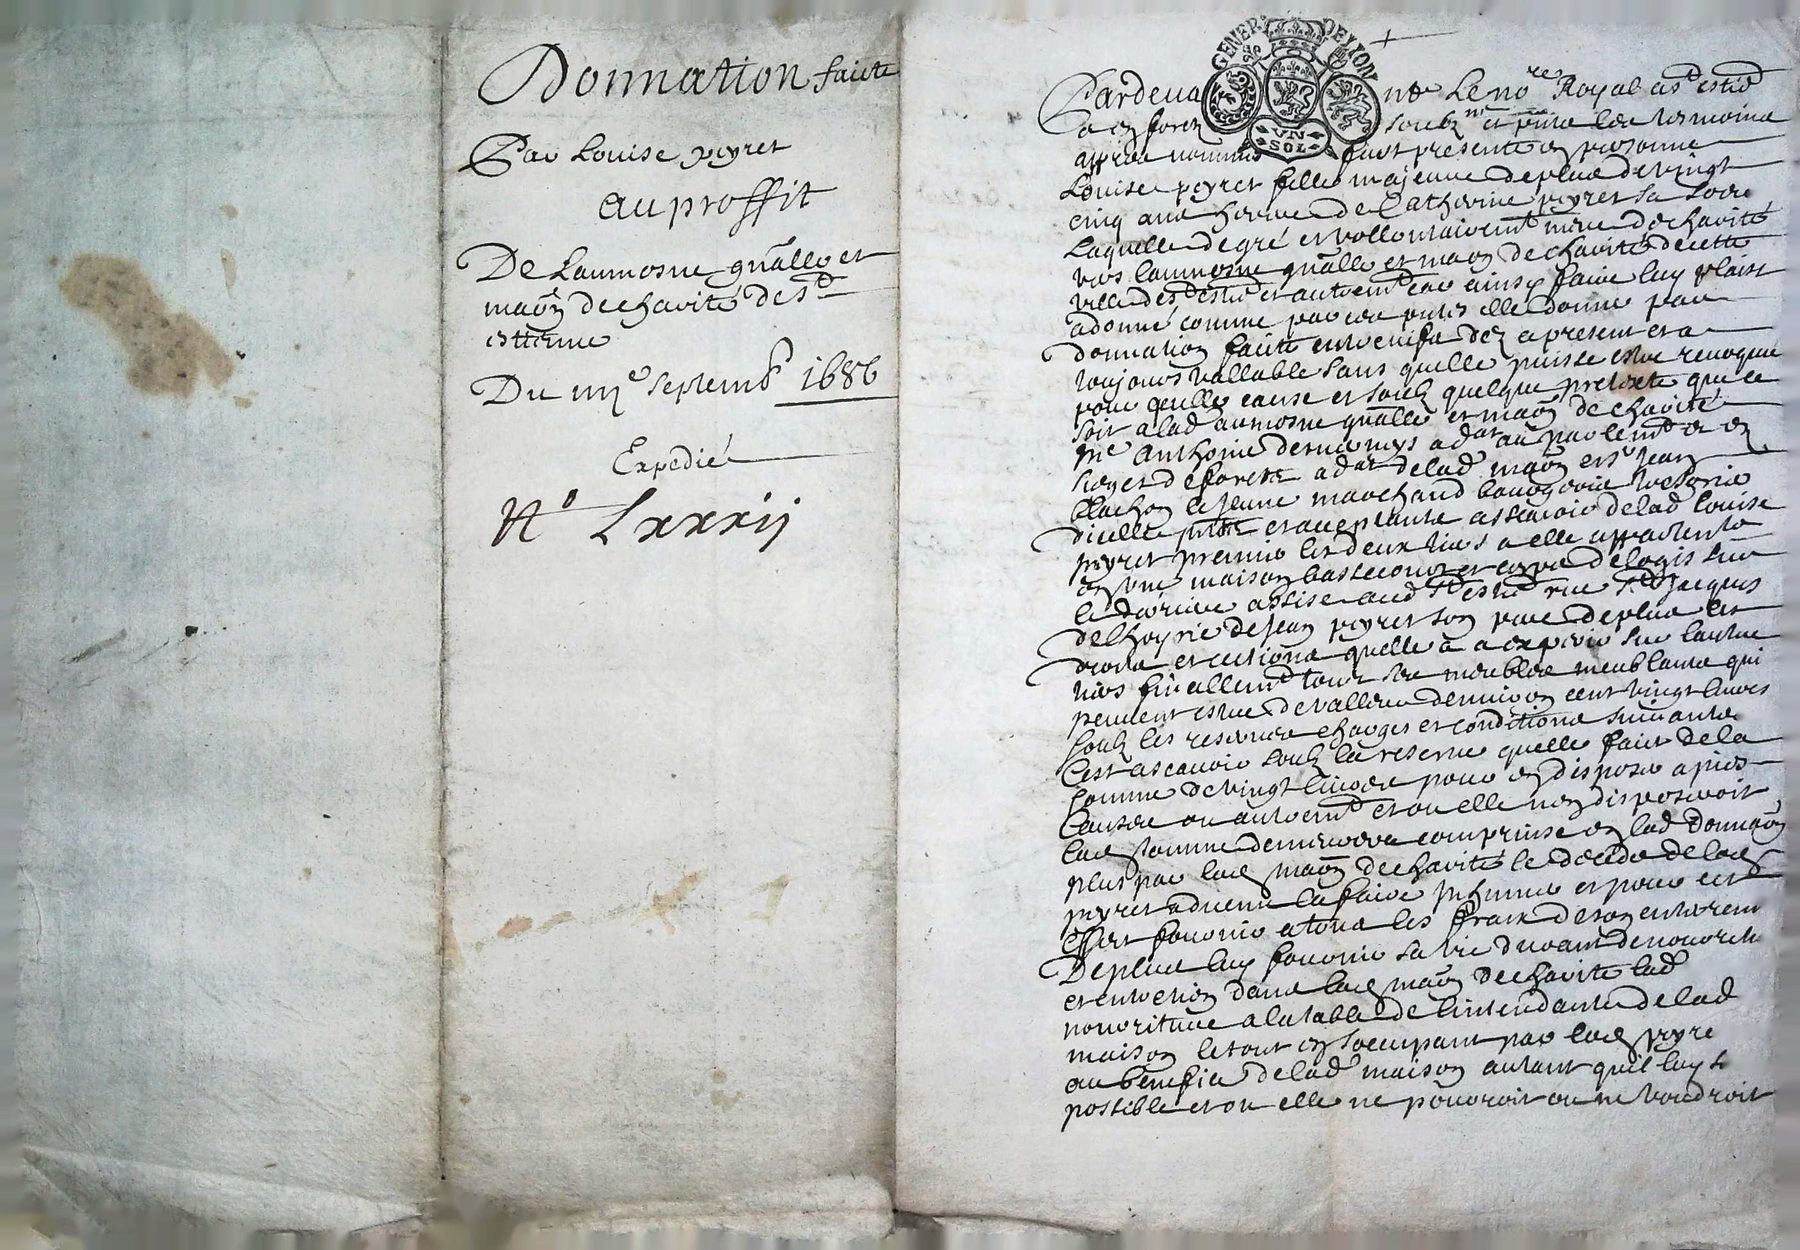 Donnation faicte
Par Louise peyret
au proffit
De Laumosne gnalle et
maon de charité de St
estienne
Du iiije septemb 1686
Expedié
No Lxxxij
GENER DE LION
UN
SOL
Pardevant Le nore Royal
en forez soubz et
appres nommes fust presente en personne
Louise peyret fille majeure de plus de vingt
cinq ans de Catherine peyret sa
Laquelle de gré et vollontairemt de charité
vers laumosne gnalle et maon de charité de cette
ville de St et autremt ainsy faire luy plaist
a donné comme par ces elle donne par
donnation faicte entre vifs dez a present et a
toujours vallable sans quelle puisse estre revoquee
pour quelle cause et soubz quelque pretexte que ce
soit a lad aumosne gnalle et maon de charité
Me Anthoine advat au parlemt et en
de forestz de lad maon et sr Jean
le jeune marchand bourgeois
dicelle et acceptants assavoir de lad Louise
peyret premier les deux tiers a elle
en une maison basse cour et corps de logis sur
le derriere assise aud St rue St Jacques
de de Jean peyret son pere de plus les
droits et quelle a a sur lautre
tiers finallemt tous ses meubles meublants qui
peuvent estre de valleur denviron cent vingt livres
soubz les reserves charges et conditions suivantes
Cest ascavoir soubz la reserve quelle faict de la
somme de vingt livres pour en disposer a pies
causes ou autremt et ou elle nen disposeroit
lad somme demeurera comprinse en lad donnaon
plus par lad maon de charité le deceds de lad
peyret advenu la faire Inhumer et pour cet
effet fournir a tous les fraix de son enterremt
De plus luy fournir sa vie durant de nourriture
et entretien dans lad maon de charite lad
nourriture a la table de lintendante de lad
maison le tout en soccupant par lad peyre
au benefice de lad maison autant quil luy
possible et ou elle ne pourroit ou ne voudroit